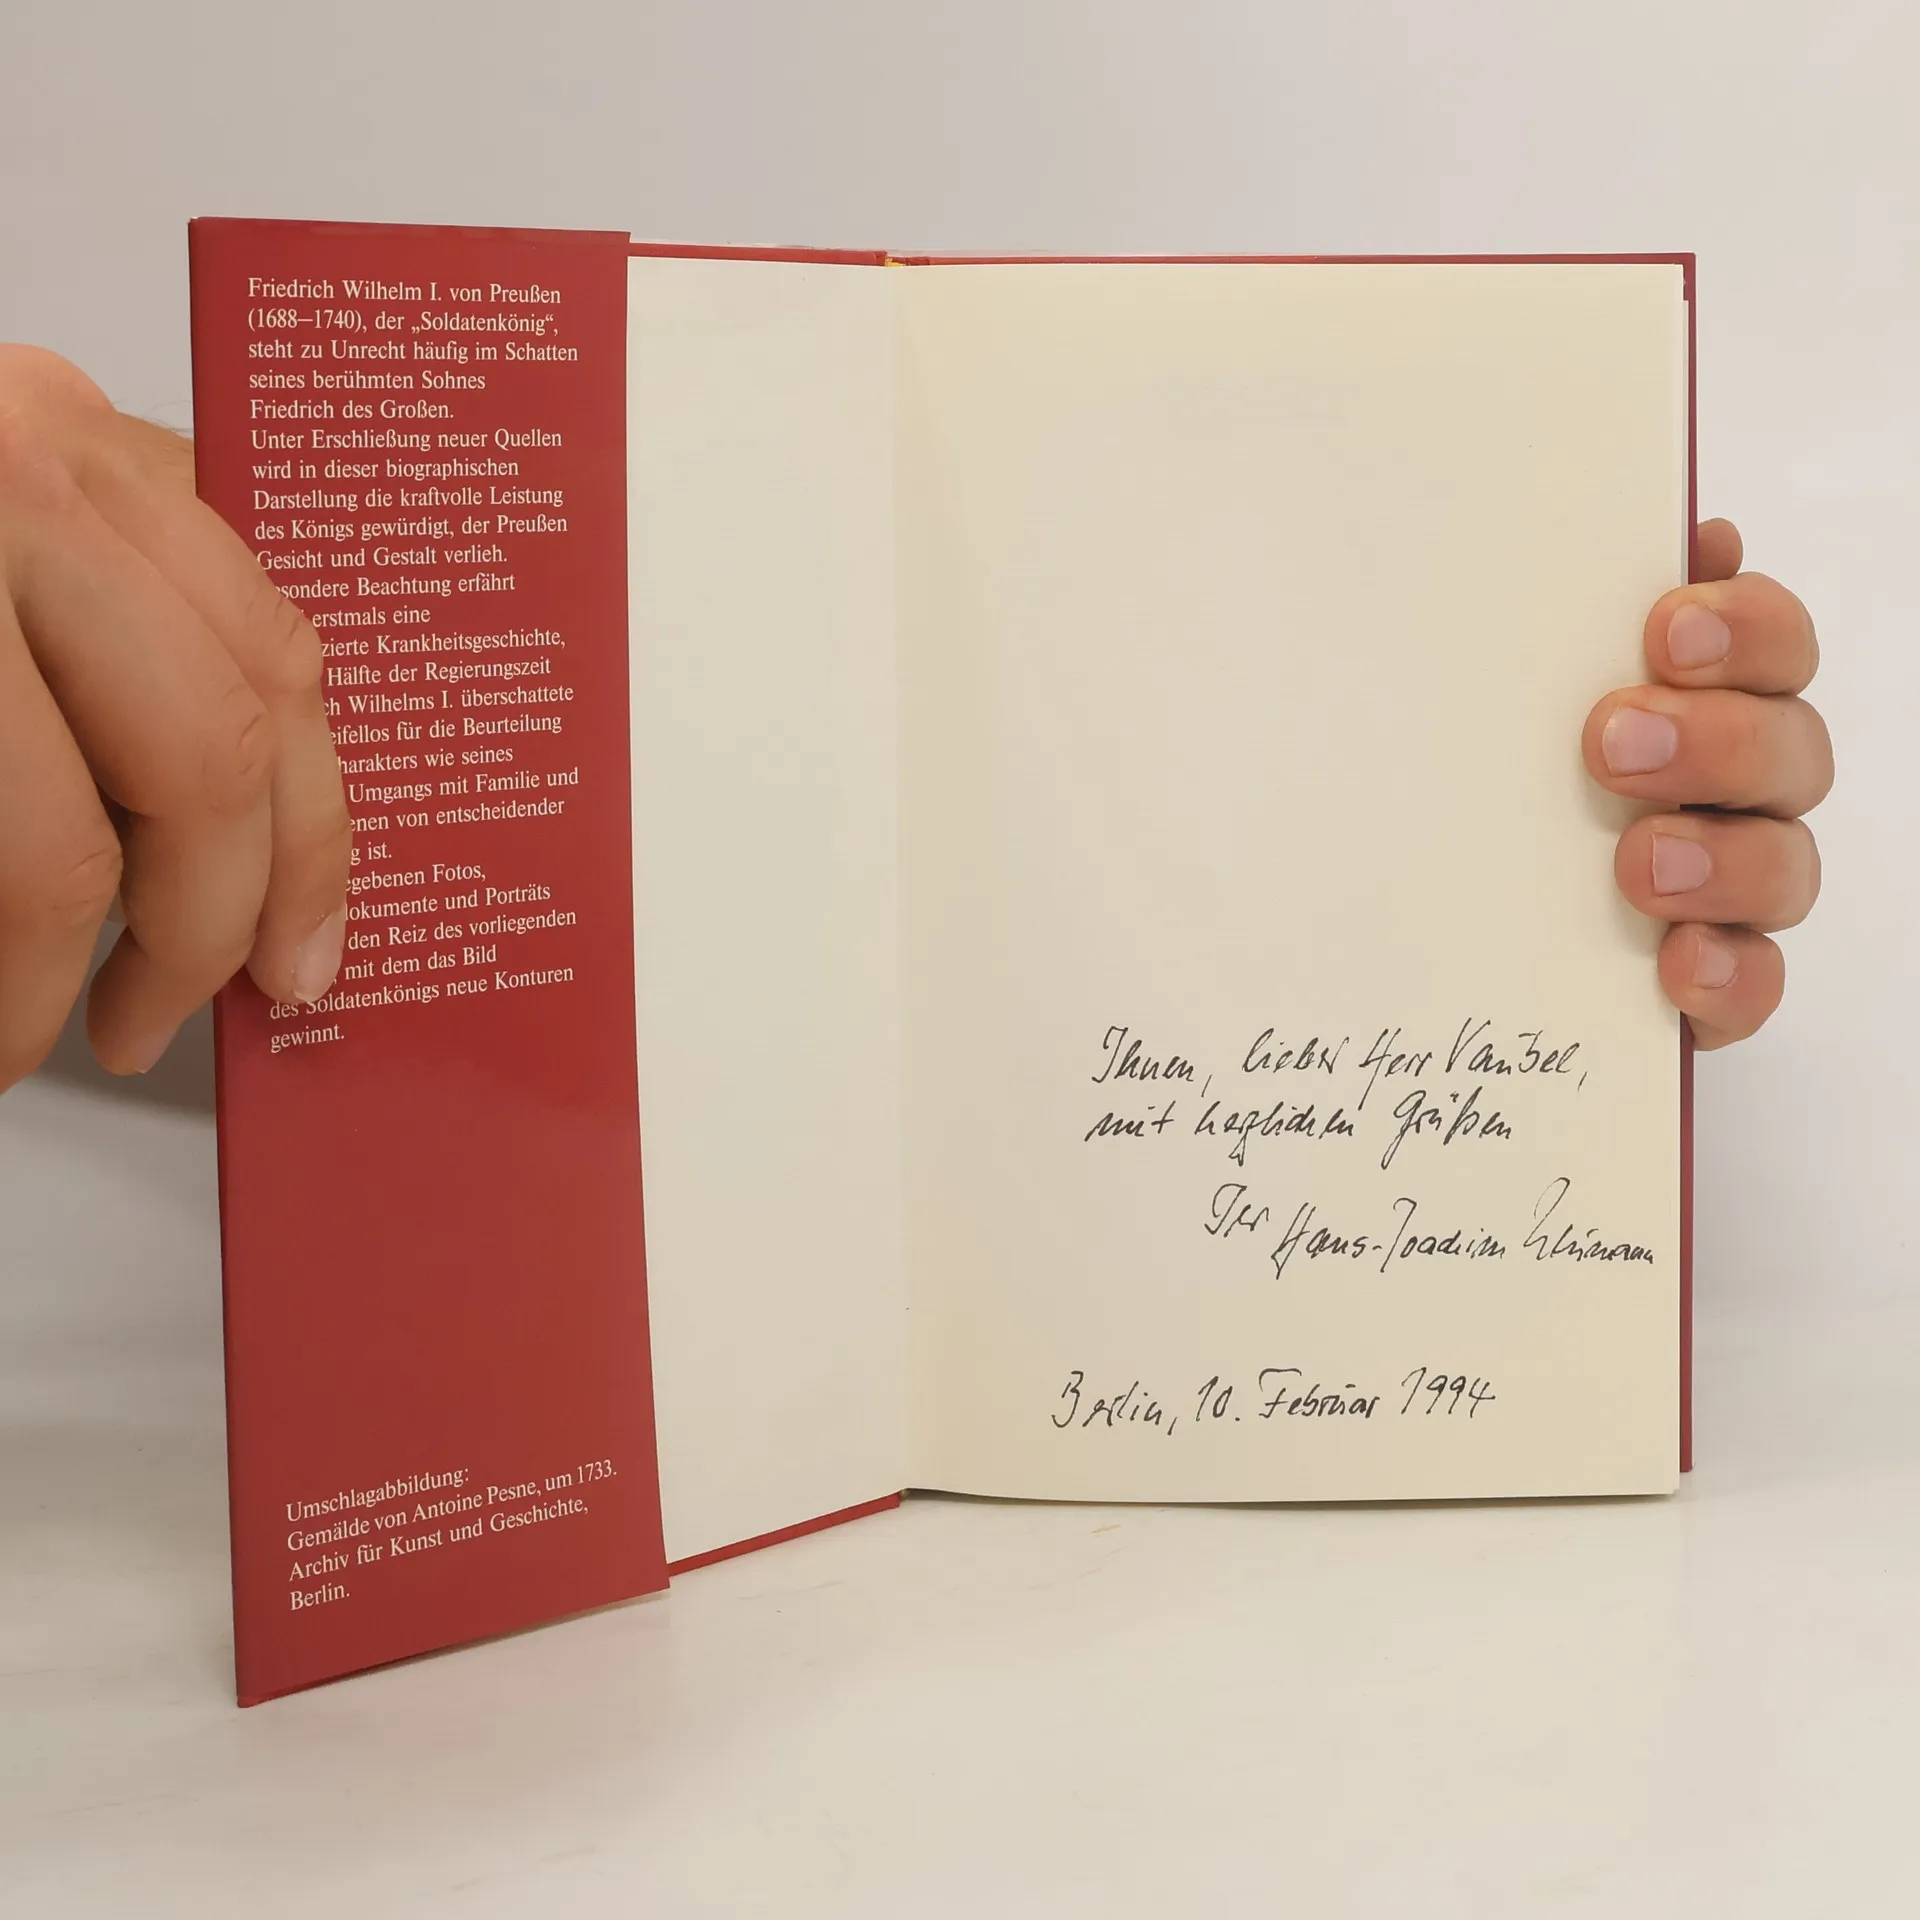 Friedrich Wilhelm I. von Preußen
(1688–1740), der „Soldatenkönig“,
steht zu Unrecht häufig im Schatten
seines berühmten Sohnes
Friedrich des Großen.
Unter Erschließung neuer Quellen
wird in dieser biographischen
Darstellung die kraftvolle Leistung
des Königs gewürdigt, der Preußen
Gesicht und Gestalt verlieh.
sondere Beachtung erfährt
erstmals eine
zierte Krankheitsgeschichte,
Hälfte der Regierungszeit
ch Wilhelms I. überschattete
eifellos für die Beurteilung
harakters wie seines
Umgangs mit Familie und
enen von entscheidender
g ist.
egebenen Fotos,
okumente und Porträts
den Reiz des vorliegenden
, mit dem das Bild
des Soldatenkönigs neue Konturen
gewinnt.
Umschlagabbildung:
Gemälde von Antoine Pesne, um 1733.
Archiv für Kunst und Geschichte,
Berlin.
Ihnen, lieber Herr
mit herzlichen Grüßen
Ihr Hans-Joachim Neumann
Berlin, 10. Februar 1994